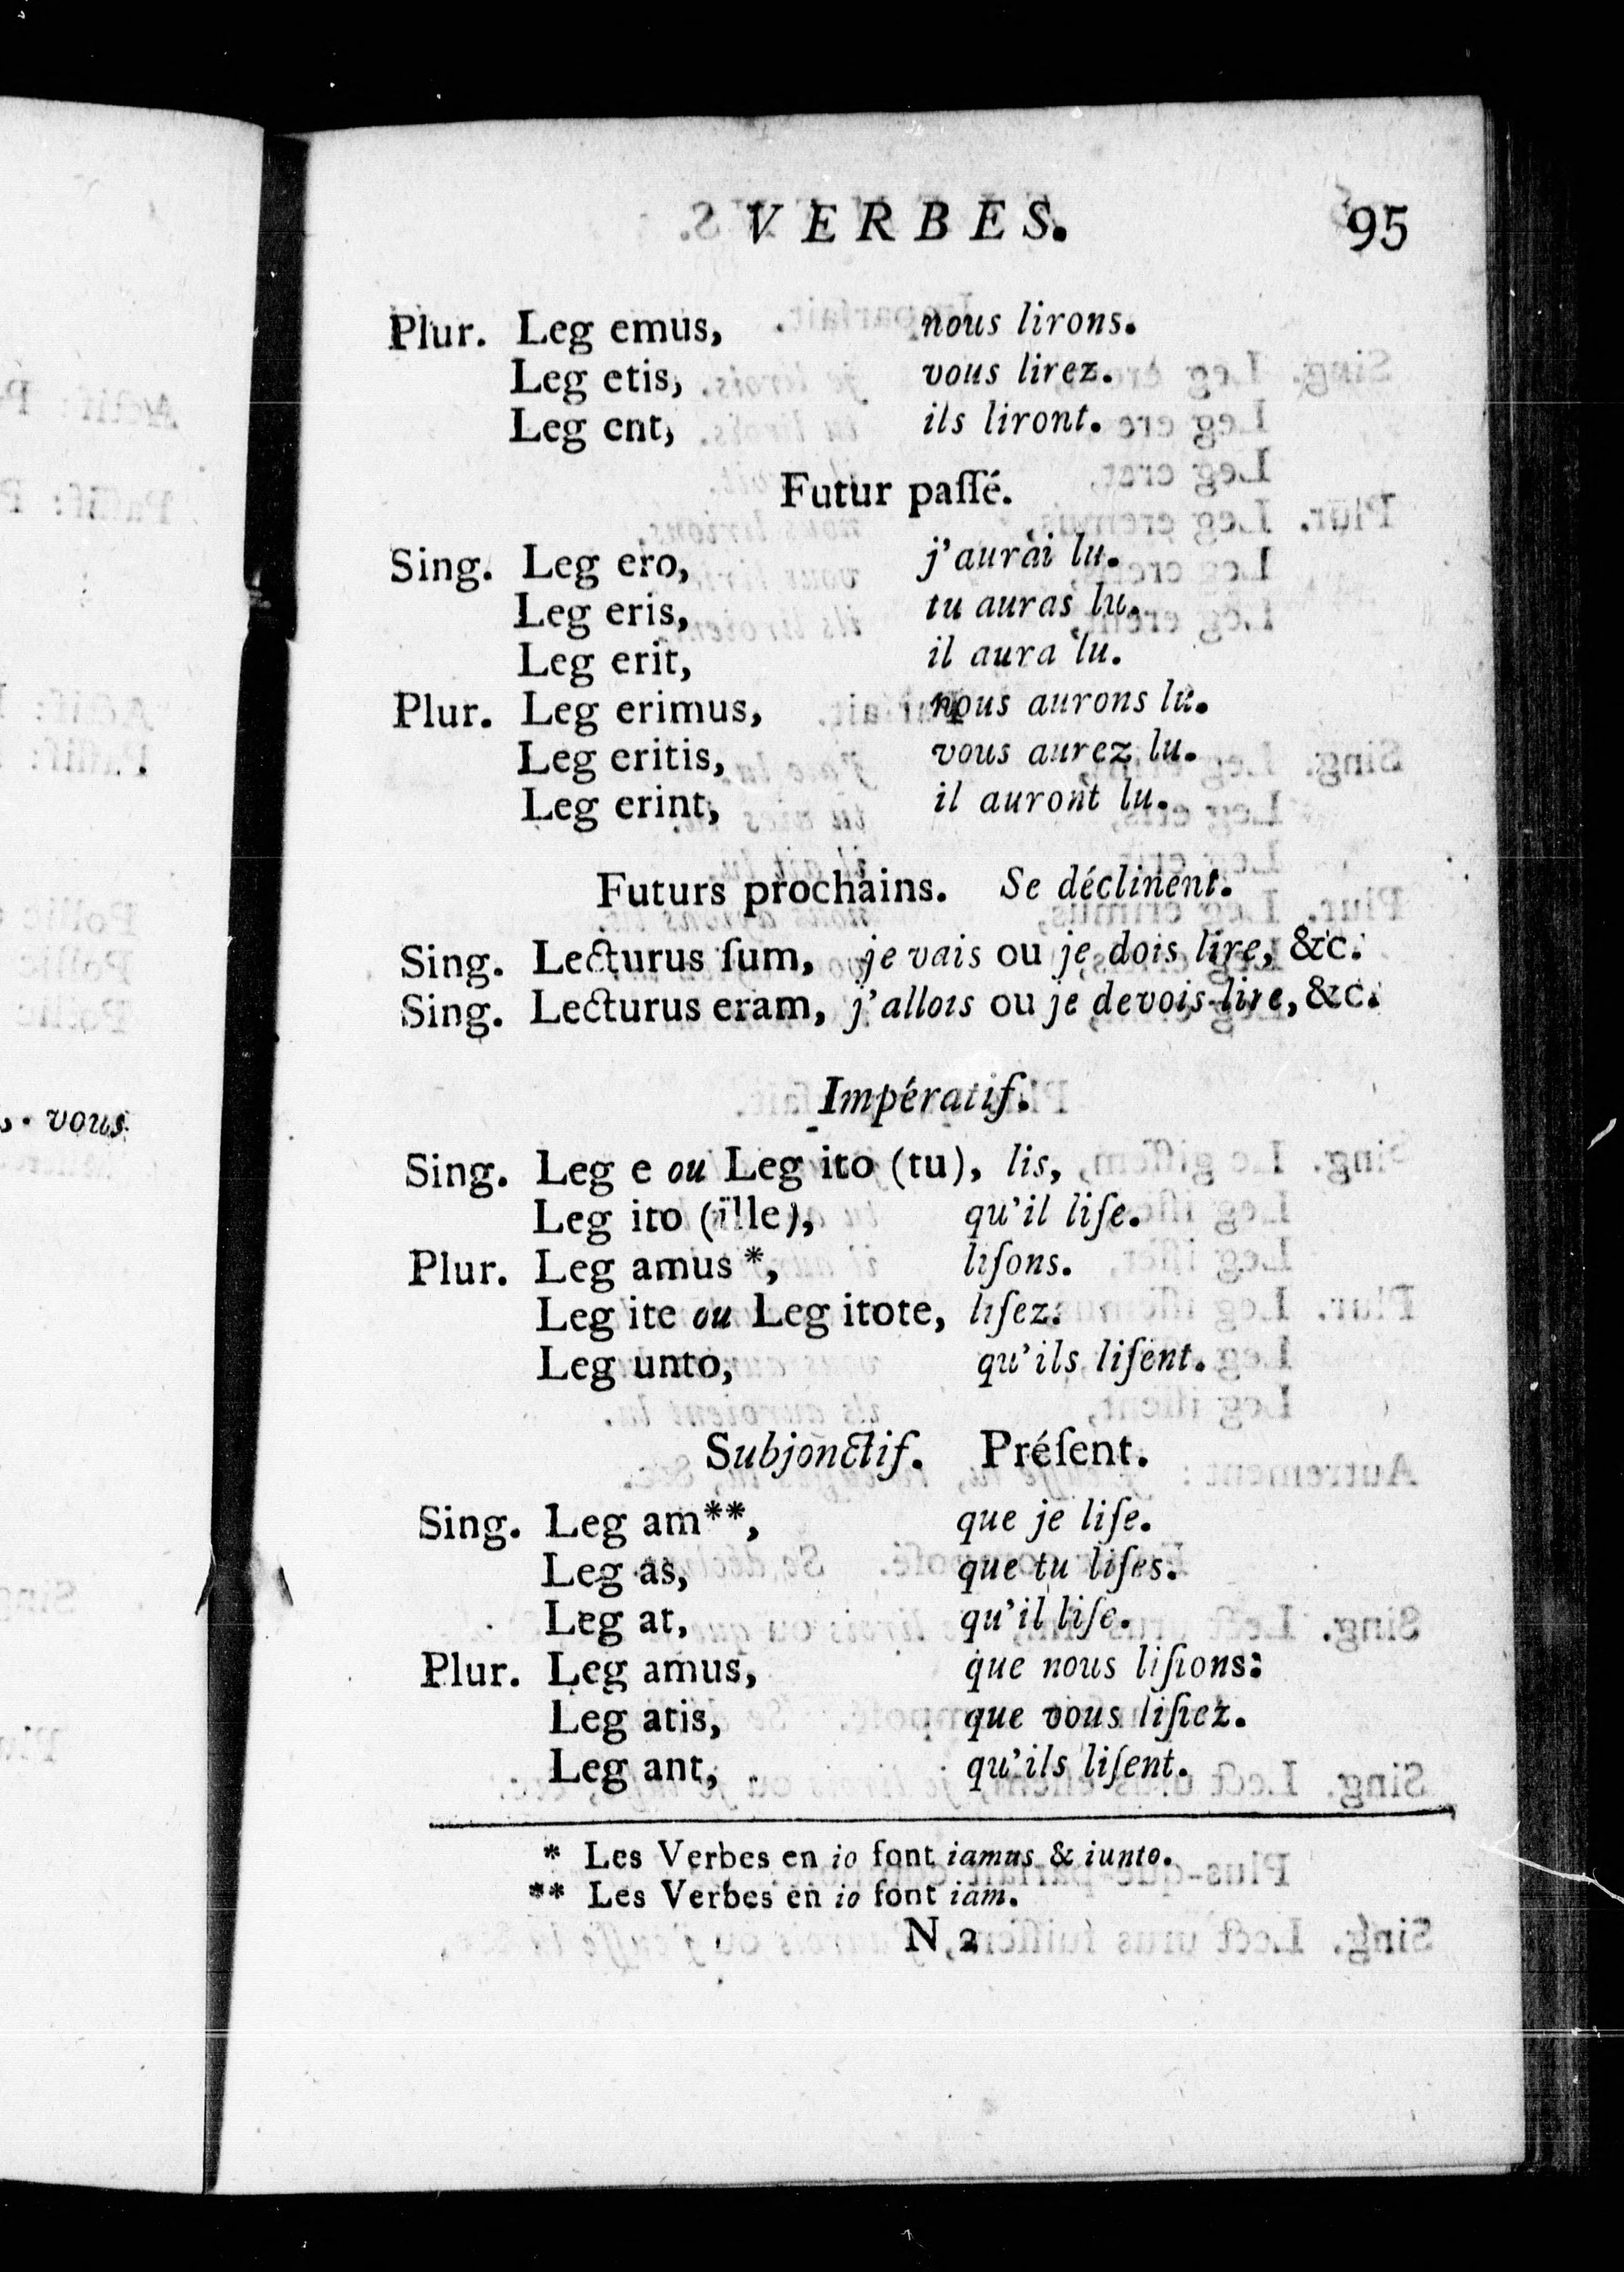 VERBES. 95
Plur. Leg emus, nous lirons.
Leg etis, vous lirez.
Leg ent, ils liront.
Futur paſſé.
Sing. Leg ero, j'aurai lu.
Leg eris, tu auras lu.
Leg erit, il aura lu.
Plur. Leg erimus, nous aurons lu.
Leg eritis, vous aurez lu.
Leg erint, il auront lu.
Futurs prochains. Se déclinent.
Sing. Lecturus ſum, je vais ou je dois lire, &c.
Sing. Lecturus eram, j'allois ou je devois lire, &c.
Impératif.
Sing. Leg e ou Leg ito (tu), lis,
Leg ito (ille), qu'il liſe.
Plur. Leg amus *, liſons.
Leg ite ou Leg itote, liſez.
Leg unto, qu'ils liſent.
Subjonctif. Préſent.
Sing. Leg am**, que je liſe.
Leg as, que tu liſes.
Leg at, qu'il liſe.
Plur. Leg amus, que nous liſions.
Leg atis, que vous liſiez.
Leg ant, qu'ils liſent.
* Les Verbes en io font iamus & iunto.
** Les Verbes en io font iam.
N 2
vous